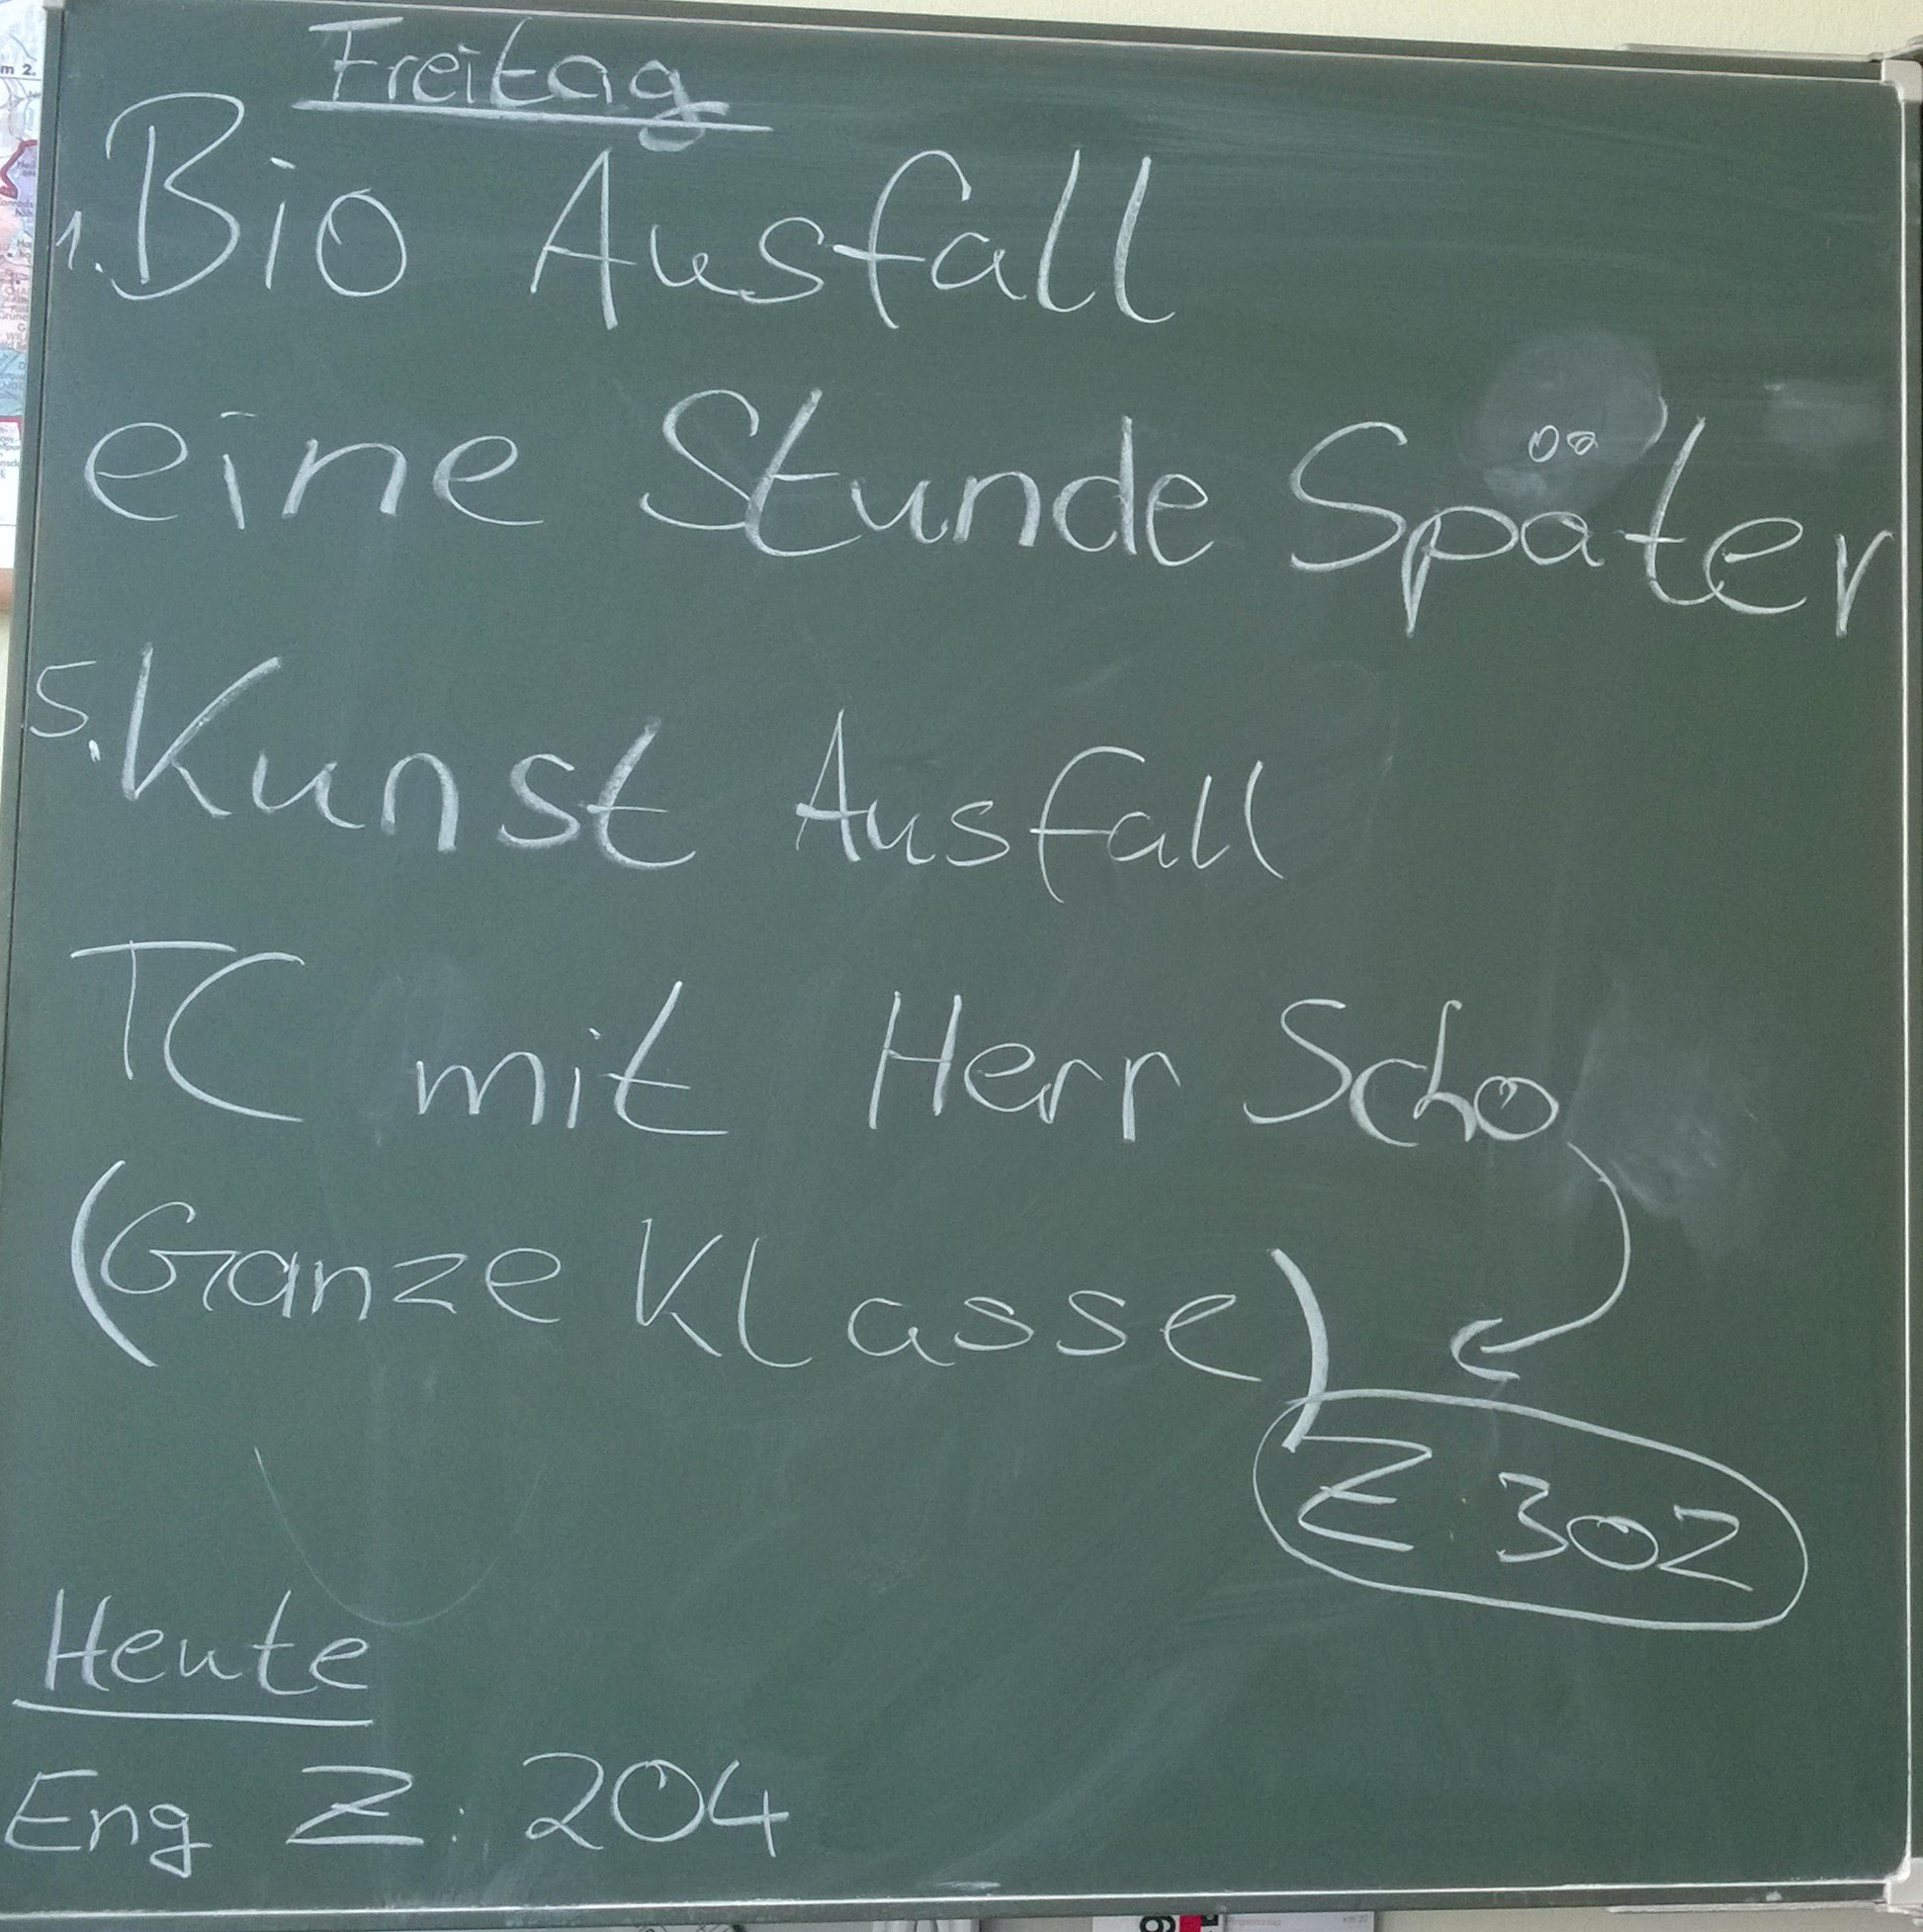 Freitag
1. Bio Ausfall
eine Stunde Später
5. Kunst Ausfall
TC mit Herr Scho
(Ganze Klasse)
Z. 302
Heute
Eng Z. 204